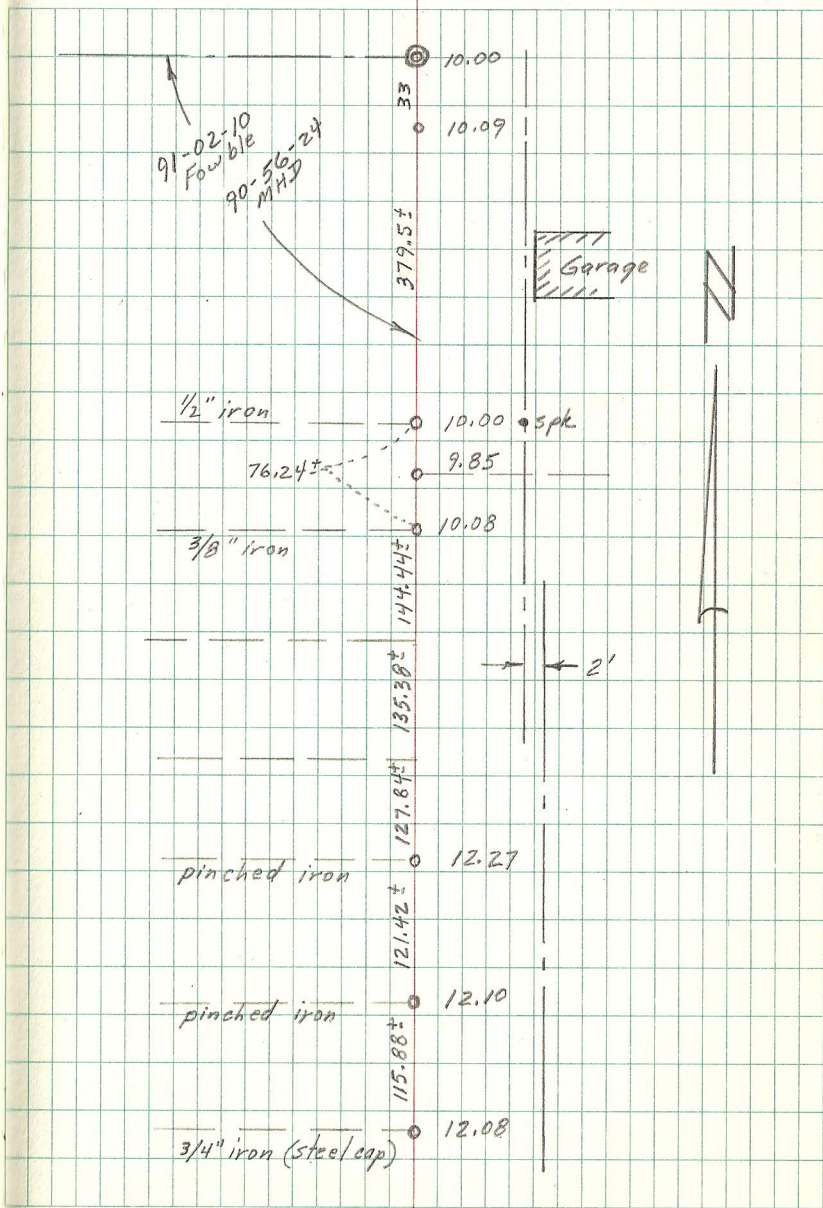 10.00
33
10.09
91-02-10
Fowble
90-56-24
MHD
379.5±
Garage
N
1/2" iron
10.00
spk
9.85
76.24±
10.08
3/8" iron
144.44±
135.38±
2'
127.84±
12.27
pinched iron
121.42±
12.10
pinched iron
115.88±
12.08
3/4" iron (steel cap)